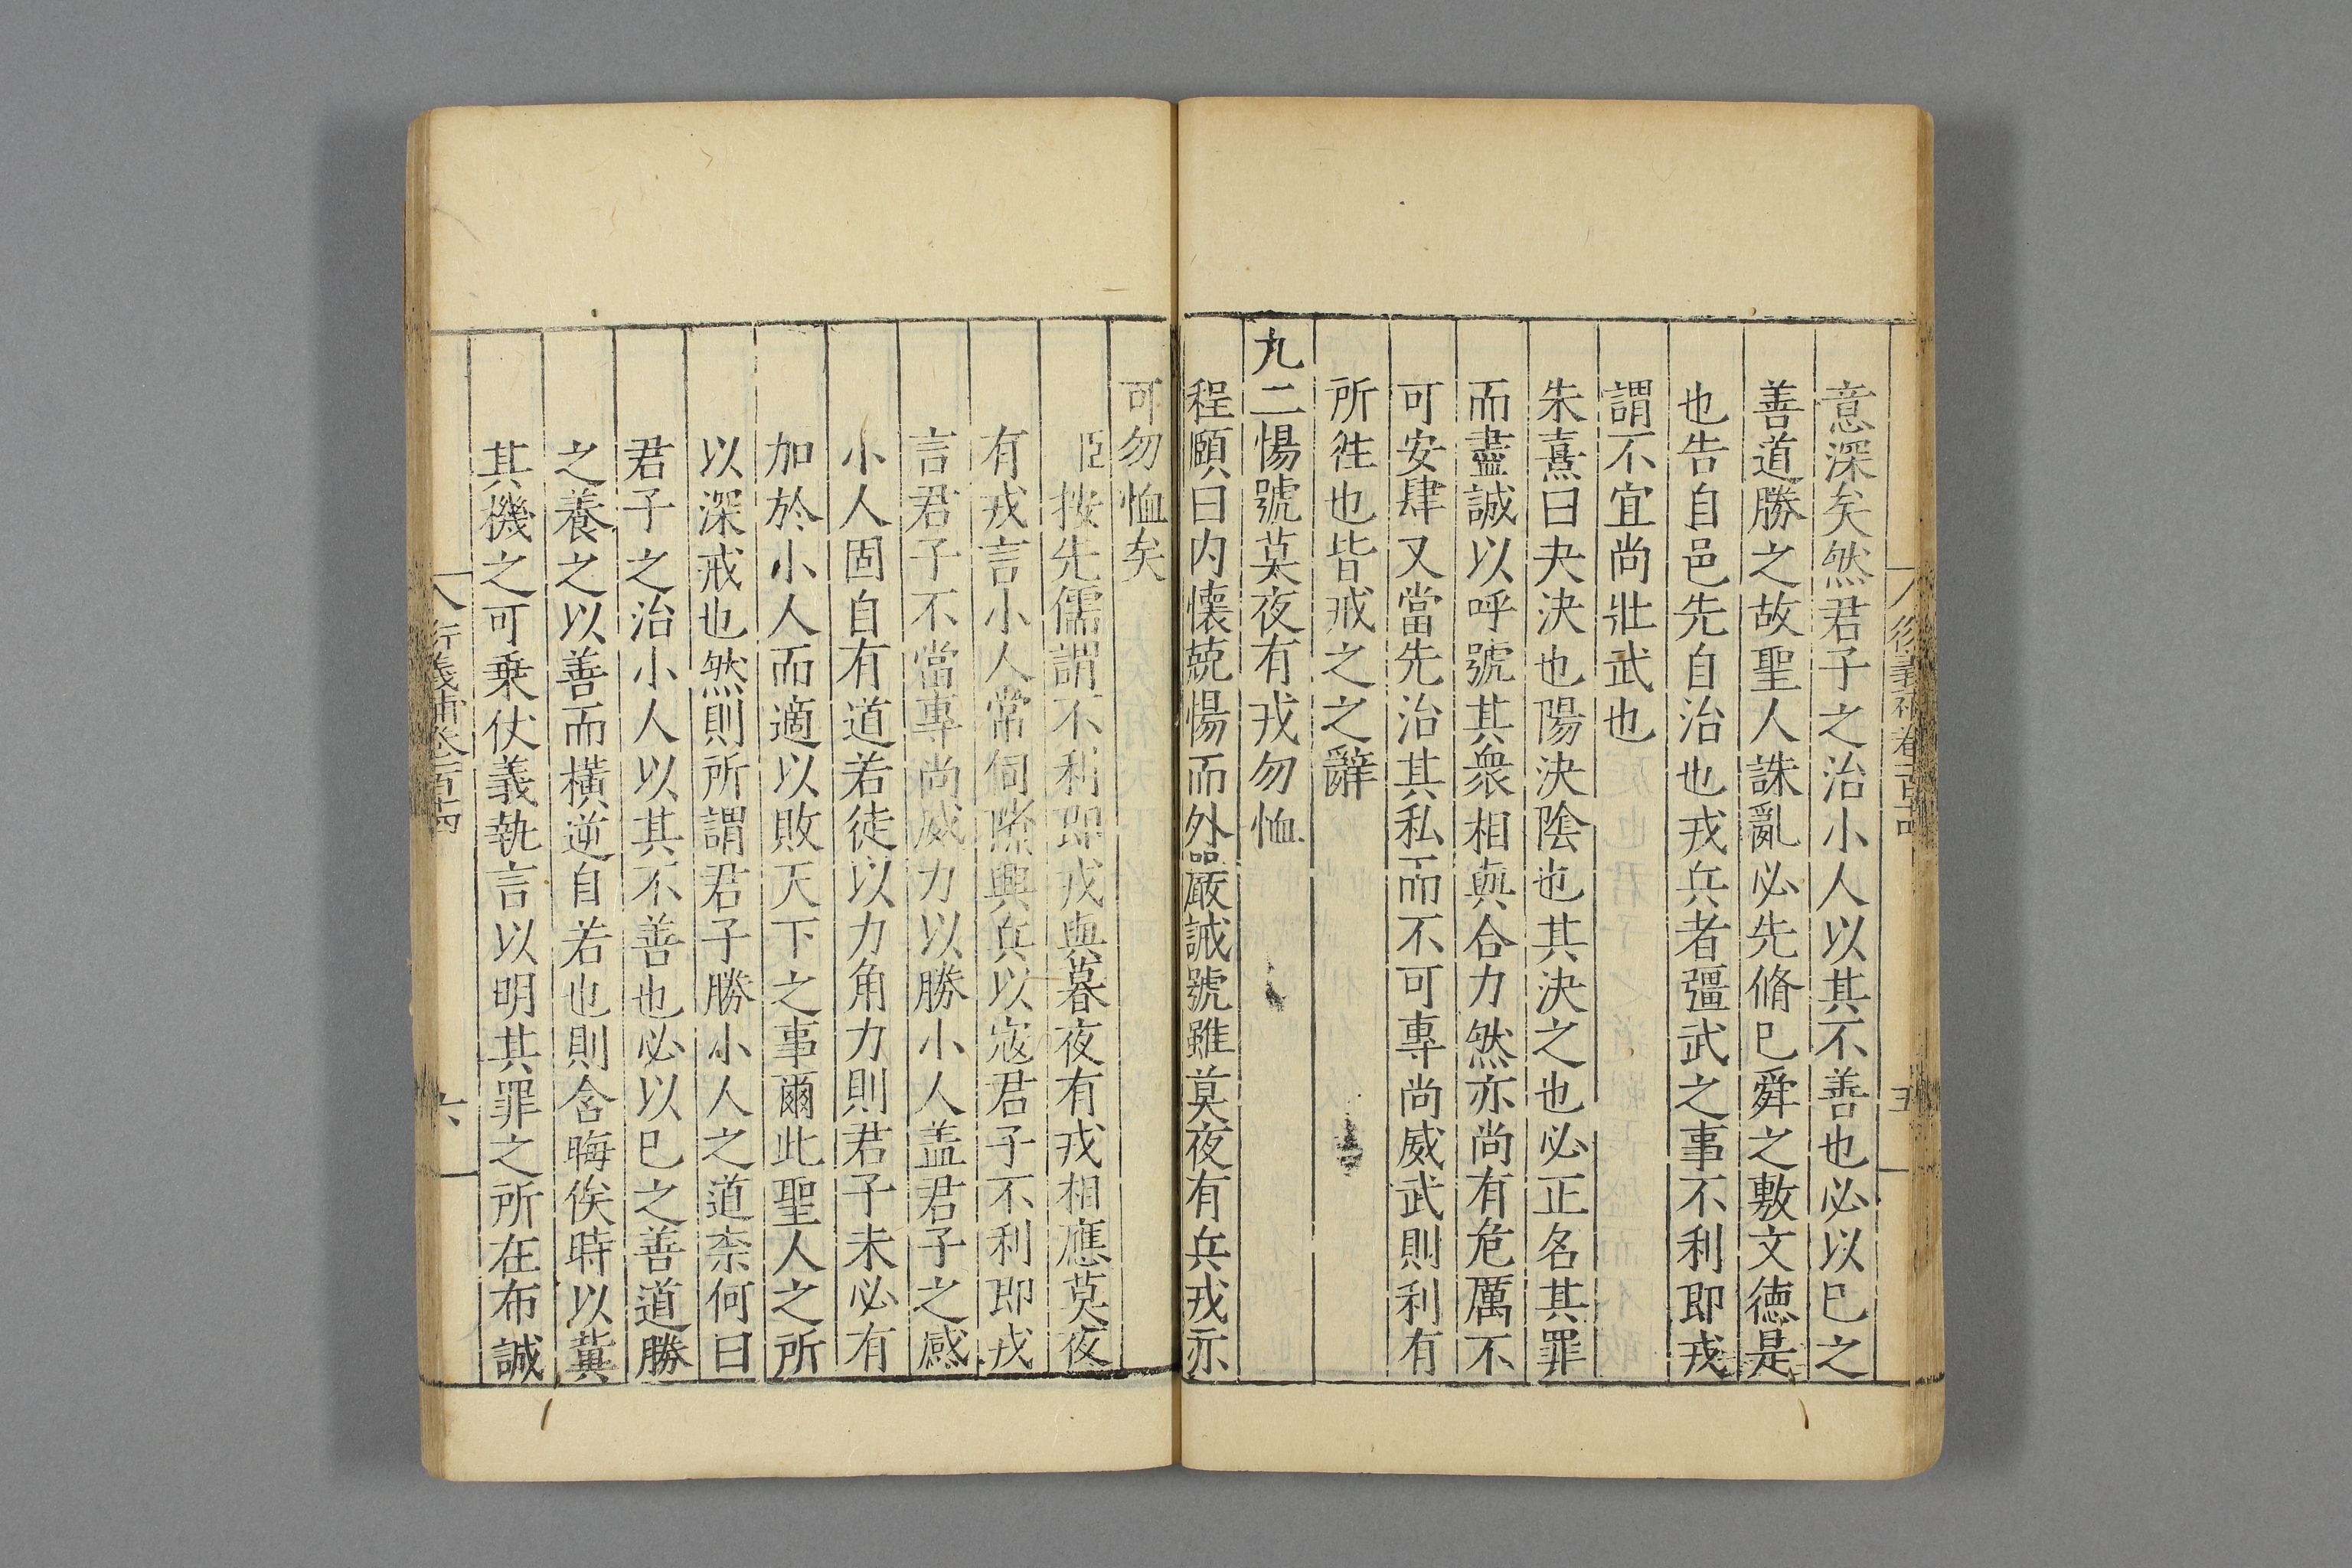 意深矣然君子之治小人以其不善也必以巳之
善道勝之故聖人誅亂必先脩巳舜之敷文徳是
也告自邑先自治也戎兵者彊武之事不利即戎
謂不宜尚壯武也
朱熹曰夬決也陽決陰也其決之也必正名其罪
而盡誠以呼號其衆相與合力然亦尚有危厲不
可安肆又當先治其私而不可專尚威武則利有
所徃也皆戒之之辭
九二惕號莫夜有戎勿恤
程頤曰内懷兢惕而外嚴誡號雖莫夜有兵戎亦
可勿恤矣
臣按先儒謂不利即戎與暮夜有戎相應莫夜
有戎言小人常伺隙興兵以寇君子不利即戎
言君子不當專尚威力以勝小人盖君子之感
小人固自有道若徒以力角力則君子未必有
加於小人而適以敗天下之事爾此聖人之所
以深戒也然則所謂君子勝小人之道柰何曰
君子之治小人以其不善也必以巳之善道勝
之養之以善而橫逆自若也則含晦俟時以冀
其機之可乗仗義執言以明其罪之所在布誠
衍義補卷百四
六